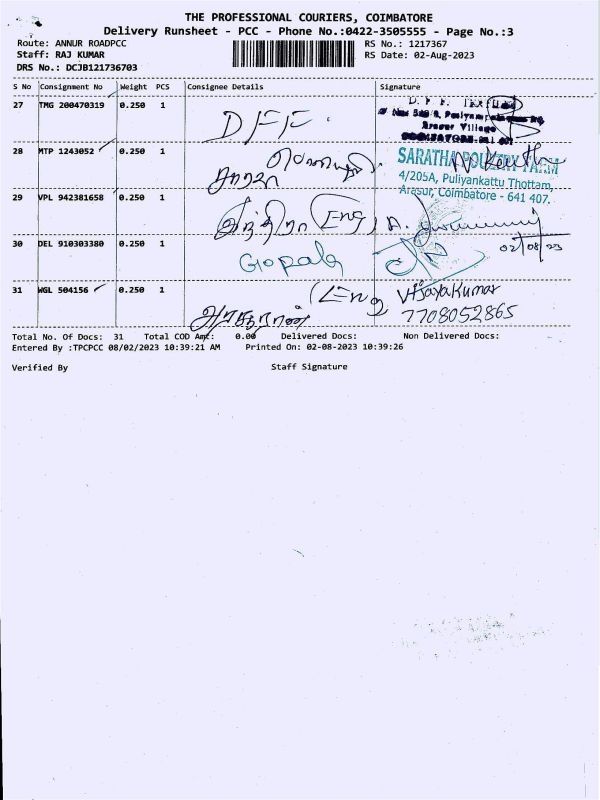 THE PROFESSIONAL COURIERS, COIMBATORE
Delivery Runsheet - PCC - Phone No.:0422-3505555 - Page No.:3
Route: ANNUR ROADPCC
RS No.: 1217367
Staff: RAJ KUMAR
RS Date: 02-Aug-2023
DRS No.: DCJB121736703
S No Consignment No Weight PCS Consignee Details Signature
27 TMG 200470319 0.250 1 DFF.
Arasur Village
28 MTP 1243052 0.250 1
SARATHA POULTRY FARM
4/205A, Puliyankattu Thottam,
Arasur, Coimbatore - 641 407.
29 VPL 942381658 0.250 1 (Eng
30 DEL 910303380 0.250 1 Gopal 02/08/23
31 WGL 504156 0.250 1 (Eng Vijayakumar
7708052865
Total No. Of Docs: 31 Total COD Amt: 0.00 Delivered Docs: Non Delivered Docs:
Entered By :TPCPCC 08/02/2023 10:39:21 AM Printed On: 02-08-2023 10:39:26
Verified By Staff Signature